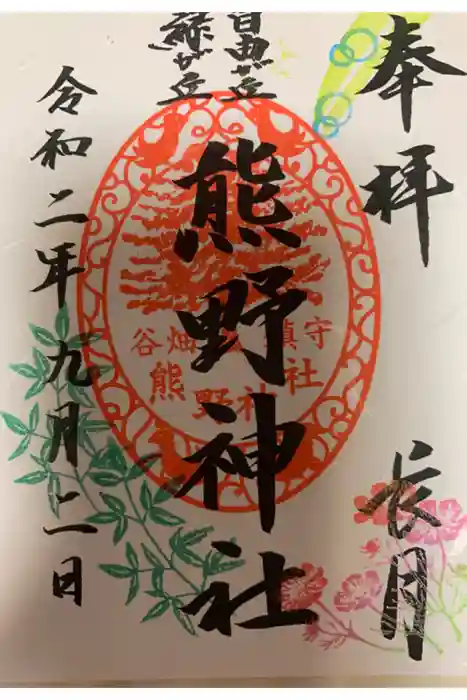 奉拝
長月
自由が丘
緑が丘
熊野神社
谷畑
鎮守
熊野神社
令和二年九月二日